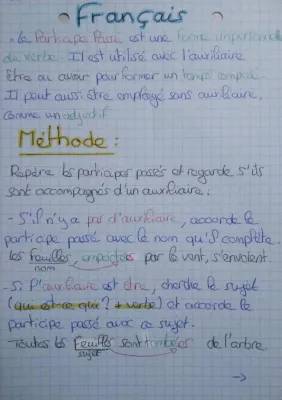 Français
- Le Participe Passé est une forme impersonnelle
du verbe. Il est utilisé avec l'auxiliaire
Etre ou avoir pour former un temps composé.
Il peut aussi être employé sans auxiliaire,
comme un adjectif
Méthode :
Repère les participes passés et regarde s'ils
sont accompagnés d'un auxiliaire.
- S'il n'y a pas d'auxiliaire, accorde le
participe passé avec le nom qu'il complète.
Les feuilles, emportées par le vent, s'envolent.
nom
- Si l'auxiliaire est être, cherche le sujet
(qui est-ce qui ? + verbe) et accorde le
participe passé avec ce sujet.
Toutes les feuilles sont tombées de l'arbre
sujet
→